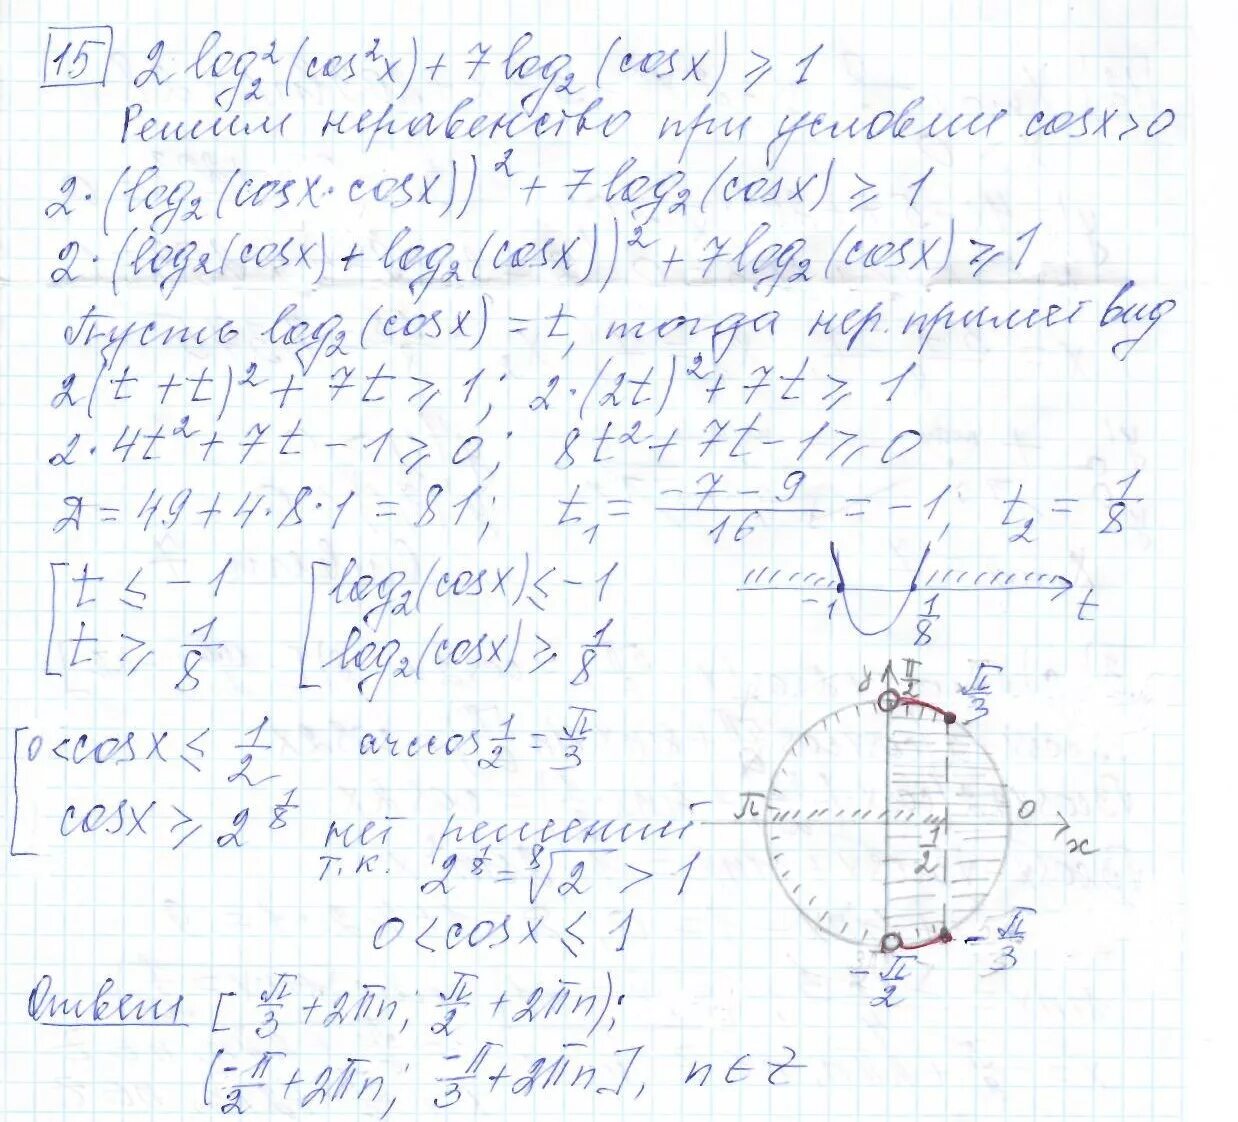 15 2 log₂²(cos²x) + 7 log₂(cosx) ⩾ 1
Решим неравенство при условии cosx>0
2·(log₂(cosx·cosx))² + 7log₂(cosx) ⩾ 1
2·(log₂(cosx) + log₂(cosx))² + 7log₂(cosx) ⩾ 1
Пусть log₂(cosx) = t, тогда нер. примет вид
2(t + t)² + 7t ⩾ 1; 2·(2t)² + 7t ⩾ 1
2·4t² + 7t − 1 ⩾ 0; 8t² + 7t − 1 ⩾ 0
Д = 49 + 4·8·1 = 81; t₁ = (−7 − 9)/16 = −1; t₂ = 1/8
[ t ⩽ −1 [ log₂(cosx) ⩽ −1
t ⩾ 1/8 log₂(cosx) ⩾ 1/8
−1 1/8 t
[ 0<cosx ⩽ 1/2 arccos 1/2 = π/3
cosx ⩾ 2^(1/8) нет решений
т.к. 2^(1/8) = ⁸√2 > 1
0 < cosx ⩽ 1
y π/2 π/3
π 1/2 0 x
−π/2 −π/3
Ответ [π/3 + 2πn; π/2 + 2πn);
(−π/2 + 2πn; −π/3 + 2πn], n ∈ Z